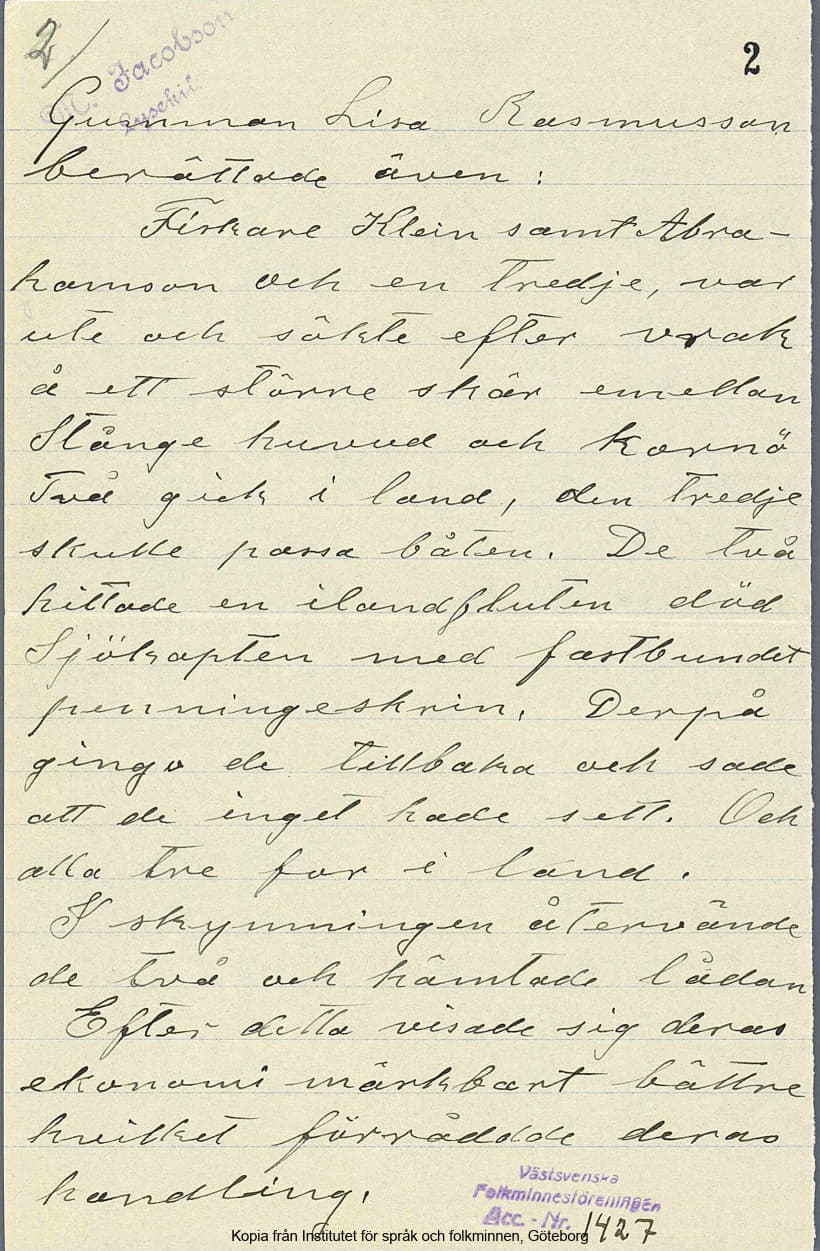 2/
C. Jacobson
Lysekil
2
Gumman Lisa Rasmusson
berättade även :
Fiskare Klein samt Abra-
hamson och en tredje, var
ute och sökte efter vrak
å ett större skär emellan
Stånge huvud och Kornö
Två gick i land, den tredje
skulle passa båten. De två
hittade en ilandfluten död
Sjökapten med fastbundet
penningeskrin. Derpå
gingo de tillbaka och sade
att de inget hade sett. Och
alla tre for i land.
I skymningen återvände
de två och hämtade lådan
Efter detta visade sig deras
ekonomi märkbart bättre
hvilket förrådde deras
handling.
Västsvenska
Folkminnesföreningen
Acc. - Nr. 1427
Kopia från Institutet för språk och folkminnen, Göteborg